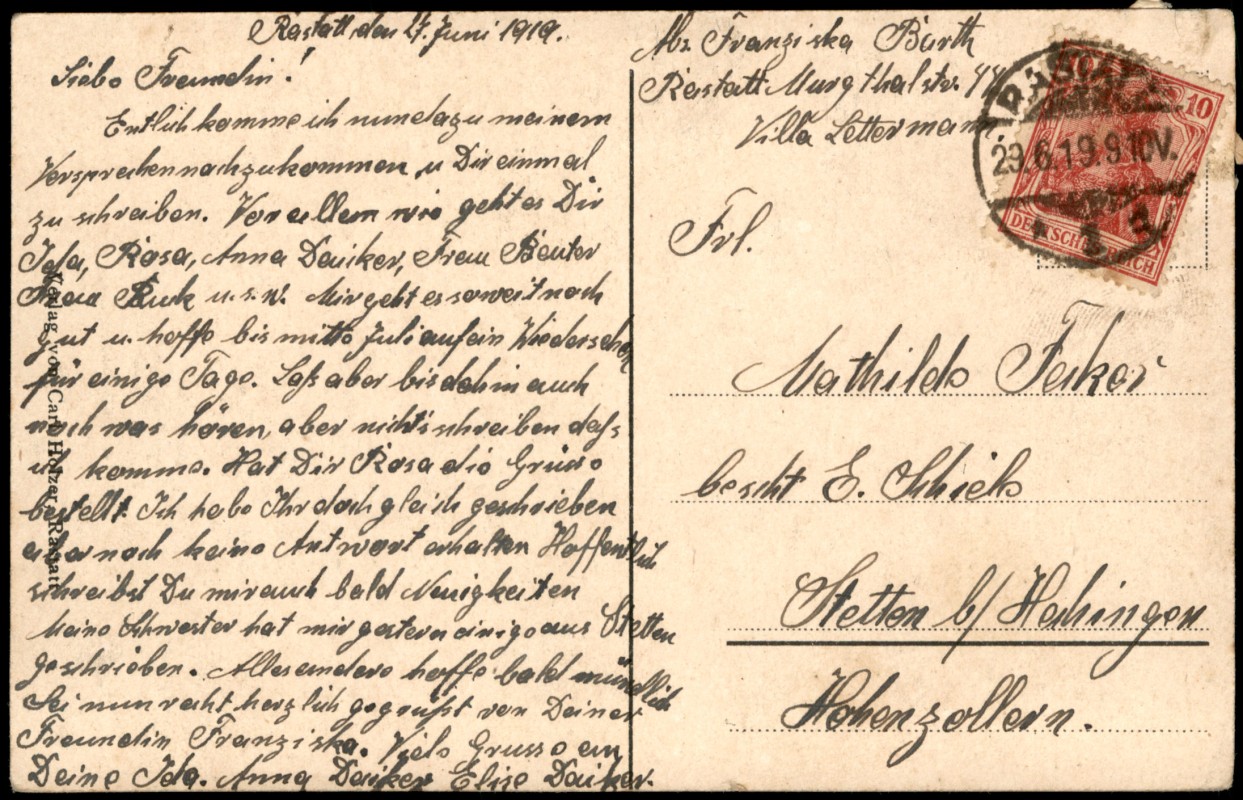 Rastatt den 27. Juni 1919.
Liebe Freundin!
Entlich komme ich nun dazu meinem
Versprechen nachzukommen u Dir einmal
zu schreiben. Vor allem wie geht es Dir
Ida, Rosa, Anna Daiker, Frau Beuter
Frau u.s.w. Mir geht es soweit noch
gut u. hoffe bis mitte Juli auf ein Wiedersehen
für einige Tage. Laß aber bis dahin auch
noch was hören, aber nichts schreiben daß
ich komme. Hat Dir Rosa die Grüsse
bestellt. Ich habe Ihr doch gleich geschrieben
aber noch keine Antwort erhalten Hoffentlich
schreibst Du mir auch bald Neuigkeiten
Meine Schwester hat mir gestern einige aus Stetten
geschrieben. Alles andere hoffe bald mündlich
Sei nun recht herzlich gegrüßt von Deiner
Freundin Franziska. Viele Grusse an
Deine Ida. Anna Daiker Elise Daiker.
Verlag von Carl Holzer, Rastatt
Abs Franziska Barth
Rastatt Murgthalstr. 44
Villa Lettermann
RASTATT
29.6.19.9-10V.
10
DEUTSCHES REICH
Frl.
Mathilde Feker
bescht E. Schick
Stetten b/ Hechingen
Hohenzollern.